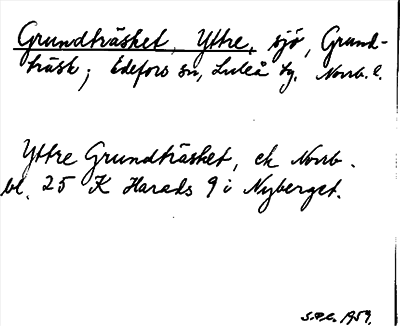 Grundträsket, Yttre, sjö, Grund-
träsk; Edefors sn, Luleå tg. Norrb. l.
Yttre Grundträsket, ek Norrb.
bl. 25 K Harads 9 i Nyberget.
S.P.C. 1959.